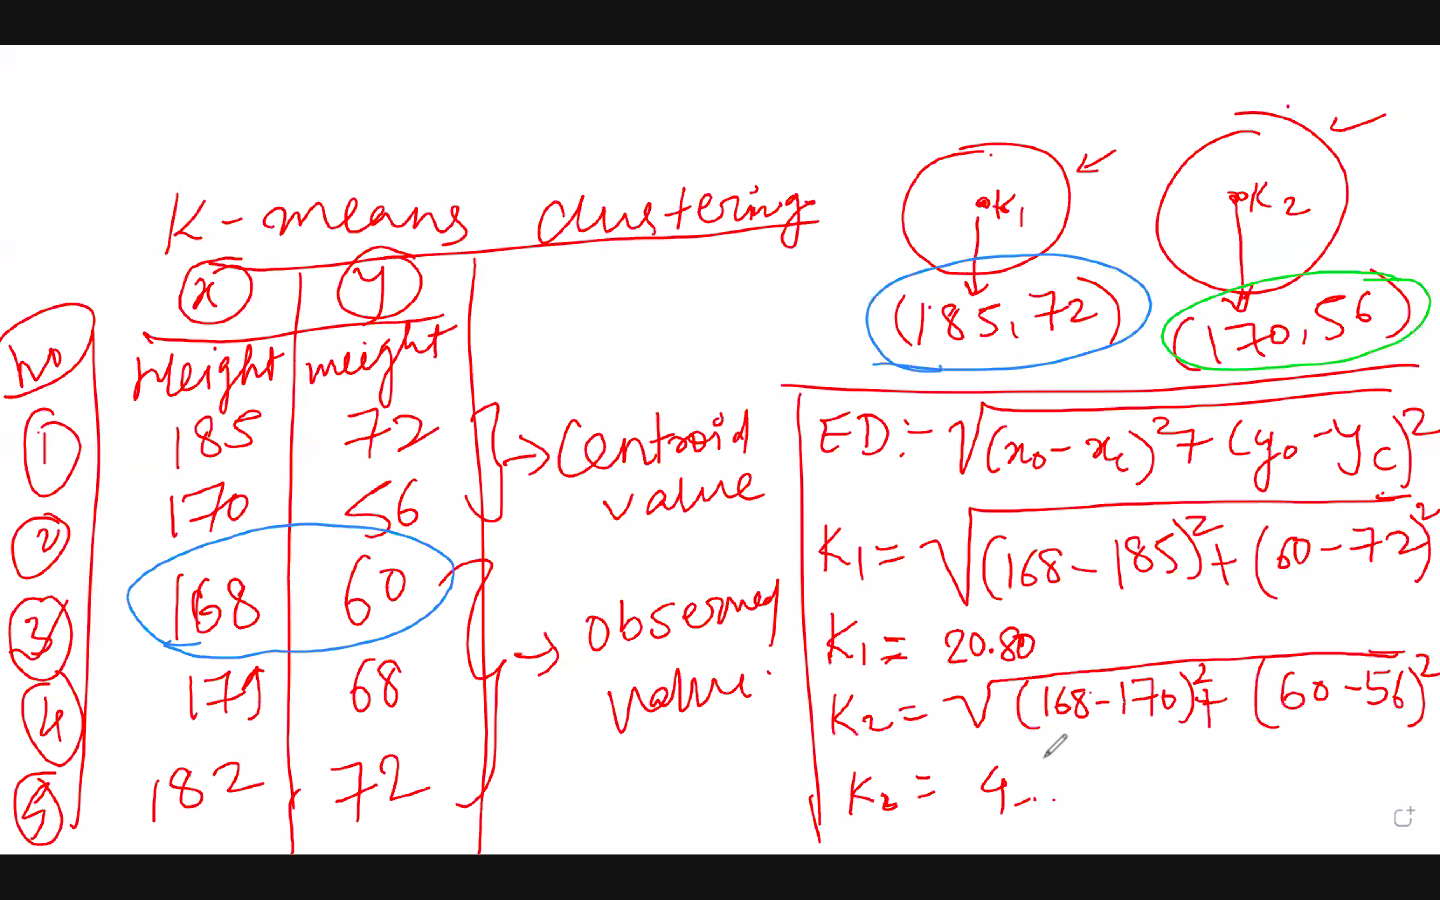 K-means clustering
x y
No Height weight
1 185 72
2 170 56
3 168 60
4 179 68
5 182 72
Centroid
value
observed
value.
K1
K2
(185,72)
(170,56)
ED:- √(xo-xc)²+(yo-yc)²
K1= √(168-185)²+(60-72)²
K1= 20.80
K2= √(168-170)²+(60-56)²
K2= 4...